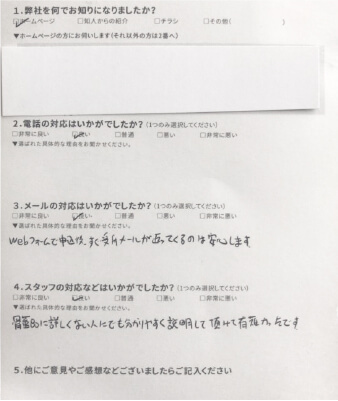 1.弊社を何でお知りになりましたか?
☑ホームページ □知人からの紹介 □チラシ □その他( )
▼ホームページの方にお伺いします(それ以外の方は2番へ)
2.電話の対応はいかがでしたか?(1つのみ選択してください)
□非常に良い ☑良い □普通 □悪い □非常に悪い
▼選ばれた具体的な理由をお聞かせください。
3.メールの対応はいかがでしたか?(1つのみ選択してください)
□非常に良い ☑良い □普通 □悪い □非常に悪い
▼選ばれた具体的な理由をお聞かせください。
webフォームで申込後、すぐ受付メールが返ってくるのは安心します
4.スタッフの対応などはいかがでしたか?(1つのみ選択してください)
□非常に良い ☑良い □普通 □悪い □非常に悪い
▼選ばれた具体的な理由をお聞かせください。
骨董品に詳しくない人にでも分かりやすく説明して頂けて有難かったです
5.他にご意見やご感想などございましたらご記入ください